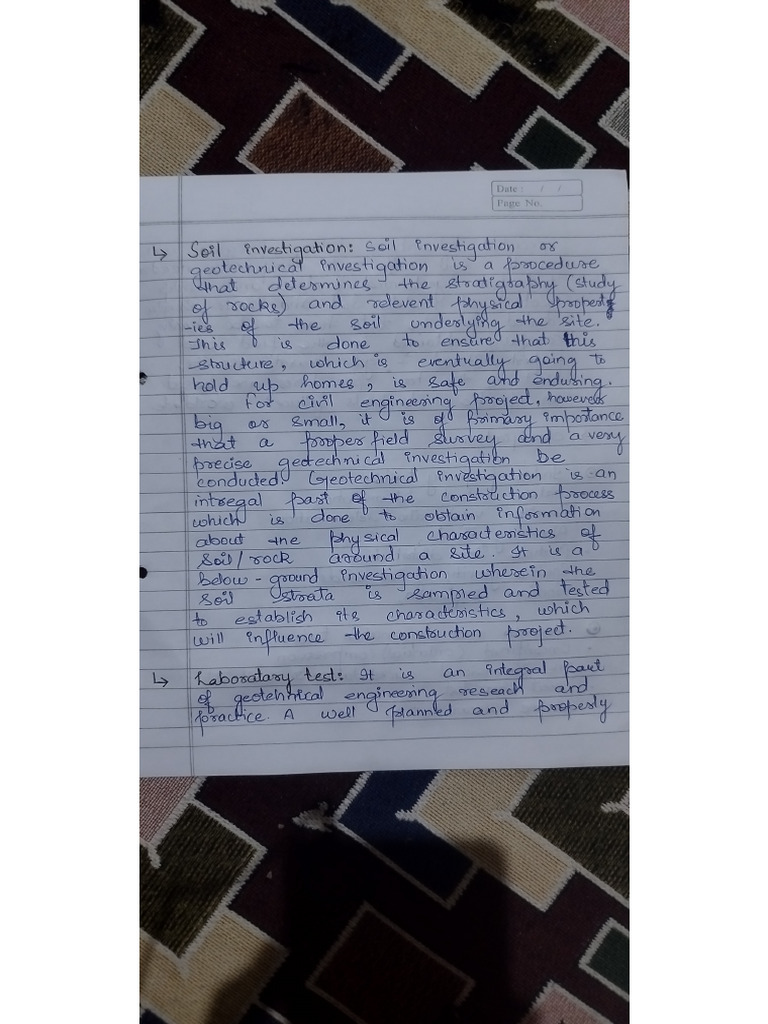 Date : / /
Page No.
↳ Soil investigation: Soil investigation or
geotechnical investigation is a procedure
that determines the stratigraphy (study
of rocks) and relevent physical propert
-ies of the soil underlying the site.
This is done to ensure that this
structure, which is eventually going to
hold up homes, is safe and enduring.
For civil engineering project, however
big or small, it is of primary importance
that a proper field survey and a very
precise geotechnical investigation be
conducted. Geotechnical investigation is an
intregal part of the construction process
which is done to obtain information
about the physical characteristics of
soil/rock around a site. It is a
below-ground investigation wherein the
soil strata is sampled and tested
to establish its characteristics, which
will influence the construction project.
↳ Laboratary test: It is an integral part
of geotehnical engineering reseach and
practice. A well planned and properly